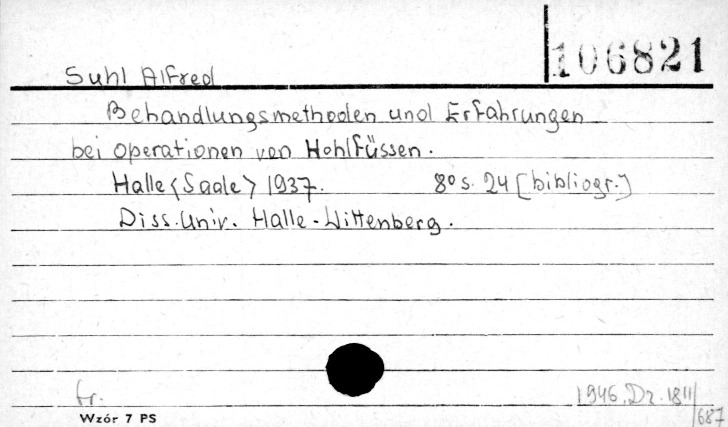 106821
Suhl Alfred
Behandlungsmethoden und Erfahrungen
bei Operationen von Hohlfüssen.
Halle <Saale> 1937. 8° s. 24 [bibliogr.]
Diss. Univ. Halle-Wittenberg.
fr. 1946. Dz. 1811/687
Wzór 7 PS